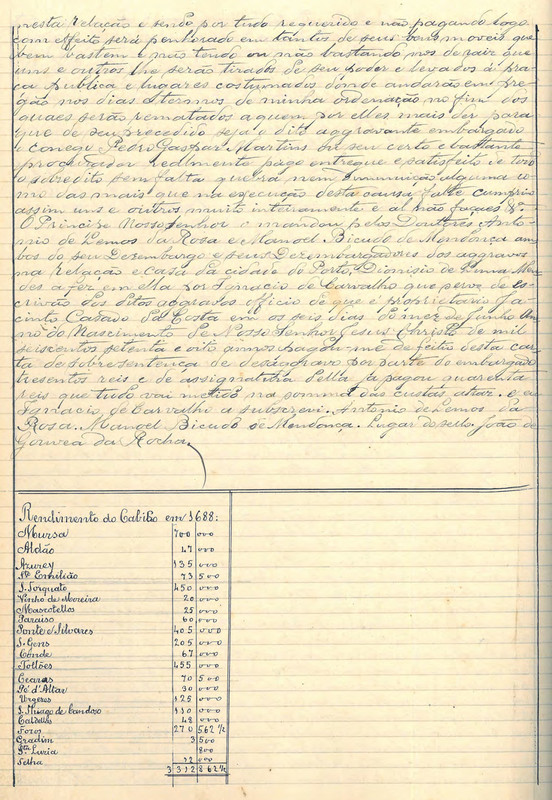 nesta Relação e sendo por tudo requerido e não pagando logo
com effeito será penhorado em tantos de seus bens moveis que
bem bastem e não tendo ou não bastando nos de raiz que
uns e outros lhe serão tirados de seu poder e levados á pra-
ça publica e lugares costumados donde andarão em pre-
gão nos dias e termos de minha ordenação no fim dos
quaes serão rematados a quem por elles mais der para
que de seu precedido seja o dito aggravante embargado
o conego Pedro Gaspar Martins ou seu certo e bastante
procurador realmente pago entregue e satisfeito de todo
o sobredito sem falta quebra nem diminuição alguma co-
mo das mais que na execução desta causa fizer cumprir
assim uns e outros muito inteiramente e al não façaes &ª
O Principe Nosso Senhor o mandou pelos Doutores Anto-
nio de Lemos da Rosa e Manoel Bicudo de Mendonça am-
bos do seu Dezembargo e seus Dezembargadores dos aggravos
na Relação e casa da cidade do Porto, Dionisio de Men-
des a fez em ella por Ignacio de Carvalho que serve de es-
crivão dos ditos aggravos officio de que é proprietario Ja-
cinto Casado da Costa em os seis dias do mez de Junho An-
no do Nascimento de Nosso Senhor Jesus Christo de mil
seiscentos setenta e oito annos pagou-me de feitio desta car-
ta de sobresentença de desaggravo por parte do embargado
tresentos reis e de assignatura della pagou quarenta
reis que tudo vai metido na somma das custas atraz. e eu
Ignacio de Carvalho a subscrevi. Antonio de Lemos da
Rosa. Manoel Bicudo de Mendonça. Lugar do sello. João de
Gouvea da Rocha.
Rendimento do Cabido em 1688:
Mursa 700 000
Aldão 47 000
Azurey 135 000
Stº Emilião 73 500
S. Torquato 450 000
Pinho de Moreira 20 000
Mascotellos 25 000
Paraiso 60 000
Ponte e Silvares 405 000
S. Gens 205 000
Conde 67 000
Tollões 455 000
Ceáras 70 500
Pé d'Altar 30 000
Urgeses 125 000
S. Thiago de Candoso 110 000
Caldellas 48 000
Foros 270 562 ½
Gradim 3 500
Stª Luzia 800
Selha 12 000
3 312 862 ½